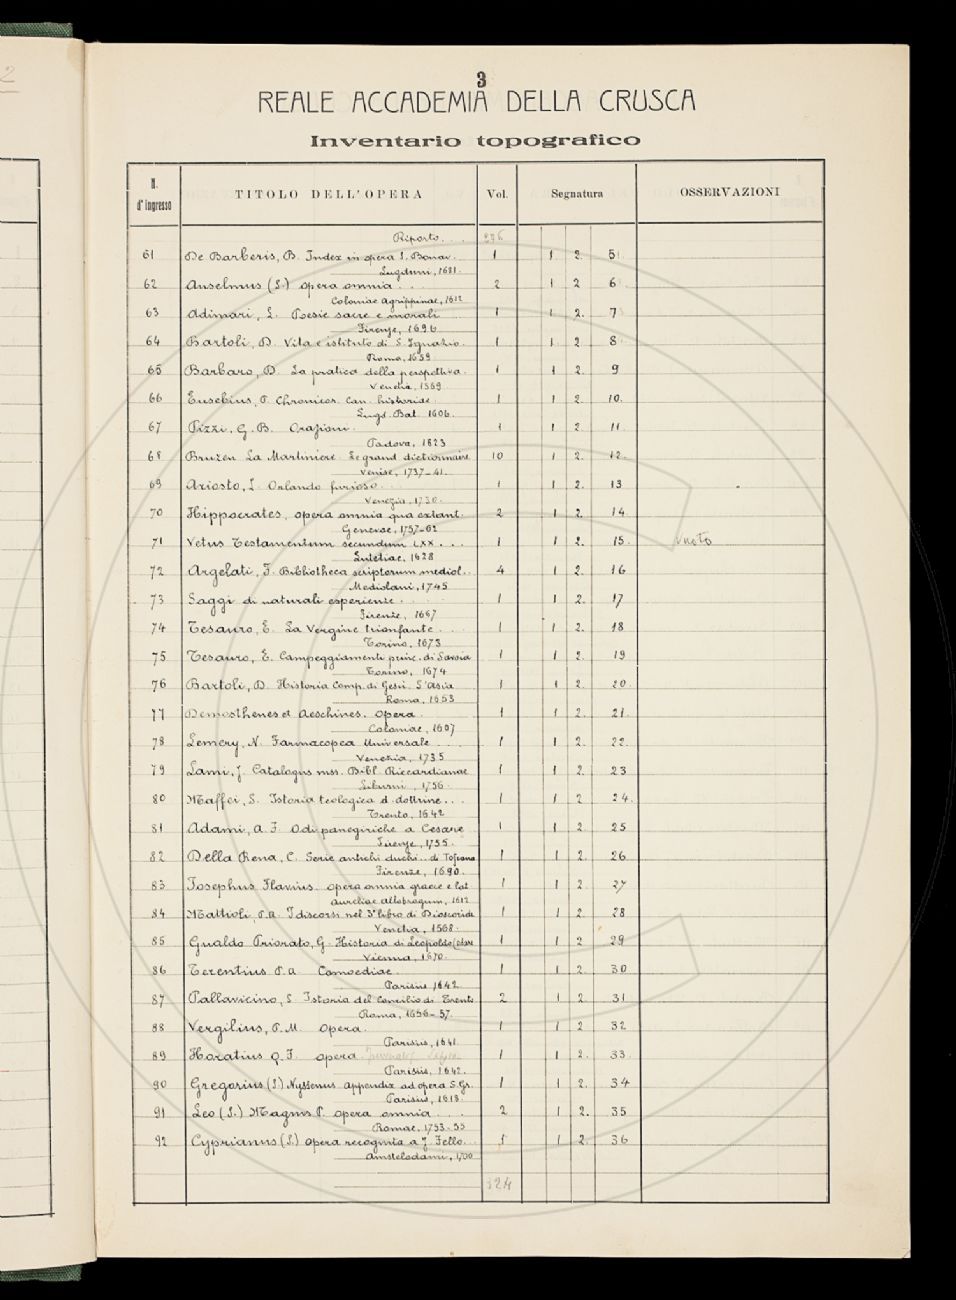 2
3
REALE ACCADEMIA DELLA CRUSCA
Inventario topografico
N. d'ingresso TITOLO DELL'OPERA Vol. Segnatura OSSERVAZIONI
Riporto . . . 276
61 De Barberis, B. Index in opera S. Bonav. 1 1 2 5
Lugduni, 1681.
62 Anselmus (S.) opera omnia . . . 2 1 2 6
Coloniae Agrippinae, 1612
63 Adimari, L. Poesie sacre e morali 1 1 2. 7
Firenze, 1696
64 Bartoli, D. Vita e istituto di S. Ignazio. 1 1 2 8
Roma, 1659
65 Barbaro, D. La pratica della perspettiva. 1 1 2 9
Venetia, 1569
66 Eusebius, P. Chronicor. Can. historiae. 1 1 2. 10.
Lugd. Bat. 1606.
67 Pizzi, G. B. Orazioni. 1 1 2 11
Padova, 1823
68 Bruzen La Martiniere. Le grand dictionnaire 10 1 2. 12.
Venise, 1737-41.
69 Ariosto, L. Orlando furioso. . . 1 1 2. 13
Venezia, 1730.
70 Hippocrates, opera omnia qua extant. 2 1 2. 14
Genevae, 1757-62
71 Vetus Testamentum secundum LXX . . . 1 1 2. 15. vuoto
Lutetiae, 1628
72 Argelati, F. Bibliotheca scriptorum mediol. . 4 1 2. 16
Mediolani, 1745
73 Saggi di naturali esperienze . . . 1 1 2. 17
Firenze, 1667
74 Tesauro, E. La Vergine trionfante . . . 1 1 2. 18
Torino, 1673
75 Tesauro, E. Campeggiamenti princ. di Savoia 1 1 2. 19
Torino, 1674
76 Bartoli, D. Historia Comp. di Gesù. L'Asia 1 1 2. 20.
Roma, 1653
77 Demosthenes et Aeschines. Opera. 1 1 2. 21.
Coloniae, 1607
78 Lemery, N. Farmacopea Universale . . . 1 1 2. 22.
Venezia, 1735
79 Lami, J. Catalogus mss. Bibl. Riccardianae 1 1 2. 23
Liburni, 1756.
80 Maffei, S. Istoria teologica d. dottrine. . . 1 1 2 24.
Trento, 1642
81 Adami, A. F. Odi panegiriche a Cesare 1 1 2. 25
Firenze, 1755.
82 Della Rena, C. Serie antichi duchi . . di Toscana 1 1 2. 26
Firenze, 1690.
83 Josephus Flavius. opera omnia graece e lat. 1 1 2. 27
Aureliae Allobrogum, 1612
84 Mattioli, P. A. I discorsi nel 3° libro di Dioscoride 1 1 2. 28
Venetia, 1568.
85 Gualdo Priorato, G. Historia di Leopoldo Cesare 1 1 2 29
Vienna, 1670.
86 Terentius P. A. Comoediae. 1 1 2. 30
Parisiis 1642.
87 Pallavicino, S. Istoria del Concilio di Trento 2 1 2. 31
Roma, 1656-57.
88 Vergilius, P. M. Opera. 1 1 2 32
Parisiis, 1641.
89 Horatius Q. F. opera 1 1 2. 33.
Parisiis, 1642.
90 Gregorius (S.) Nyssenus appendix ad opera S. Gr. 1 1 2. 34
Parisiis, 1618.
91 Leo (S.) Magnus P. opera omnia . . . 2 1 2. 35
Romae, 1753-55
92 Cyprianus (S.) opera recognita a J. Fello. . . 1 1 2. 36
Amstelodami, 1700
324